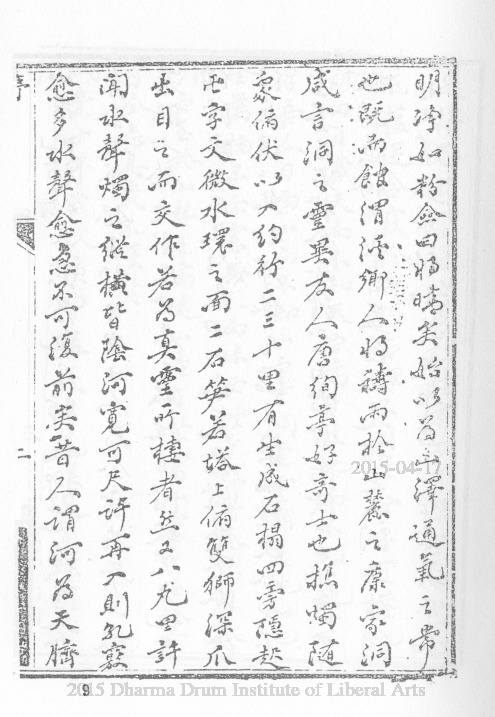 明淨如粉僉曰將晴矣始以為山澤通氣之常
也既而餘渭溪鄉人將禱雨於山麓之康家洞
咸言洞之靈異友人唐絢亭好奇士也樵燭隨
衆俯伏以入約行二三十里有生成石榻四旁隱起
卍字文微水環之面二石筍若塔上俯雙獅深爪
出目之而交作若為真靈所棲者然又八九里許
聞水聲燭之縱橫皆陰河寬可尺許再入則孔竅
愈多水聲愈急不可復前矣昔人謂河為天臍
序
二
2015-04-17
2015 Dharma Drum Institute of Liberal Arts
9